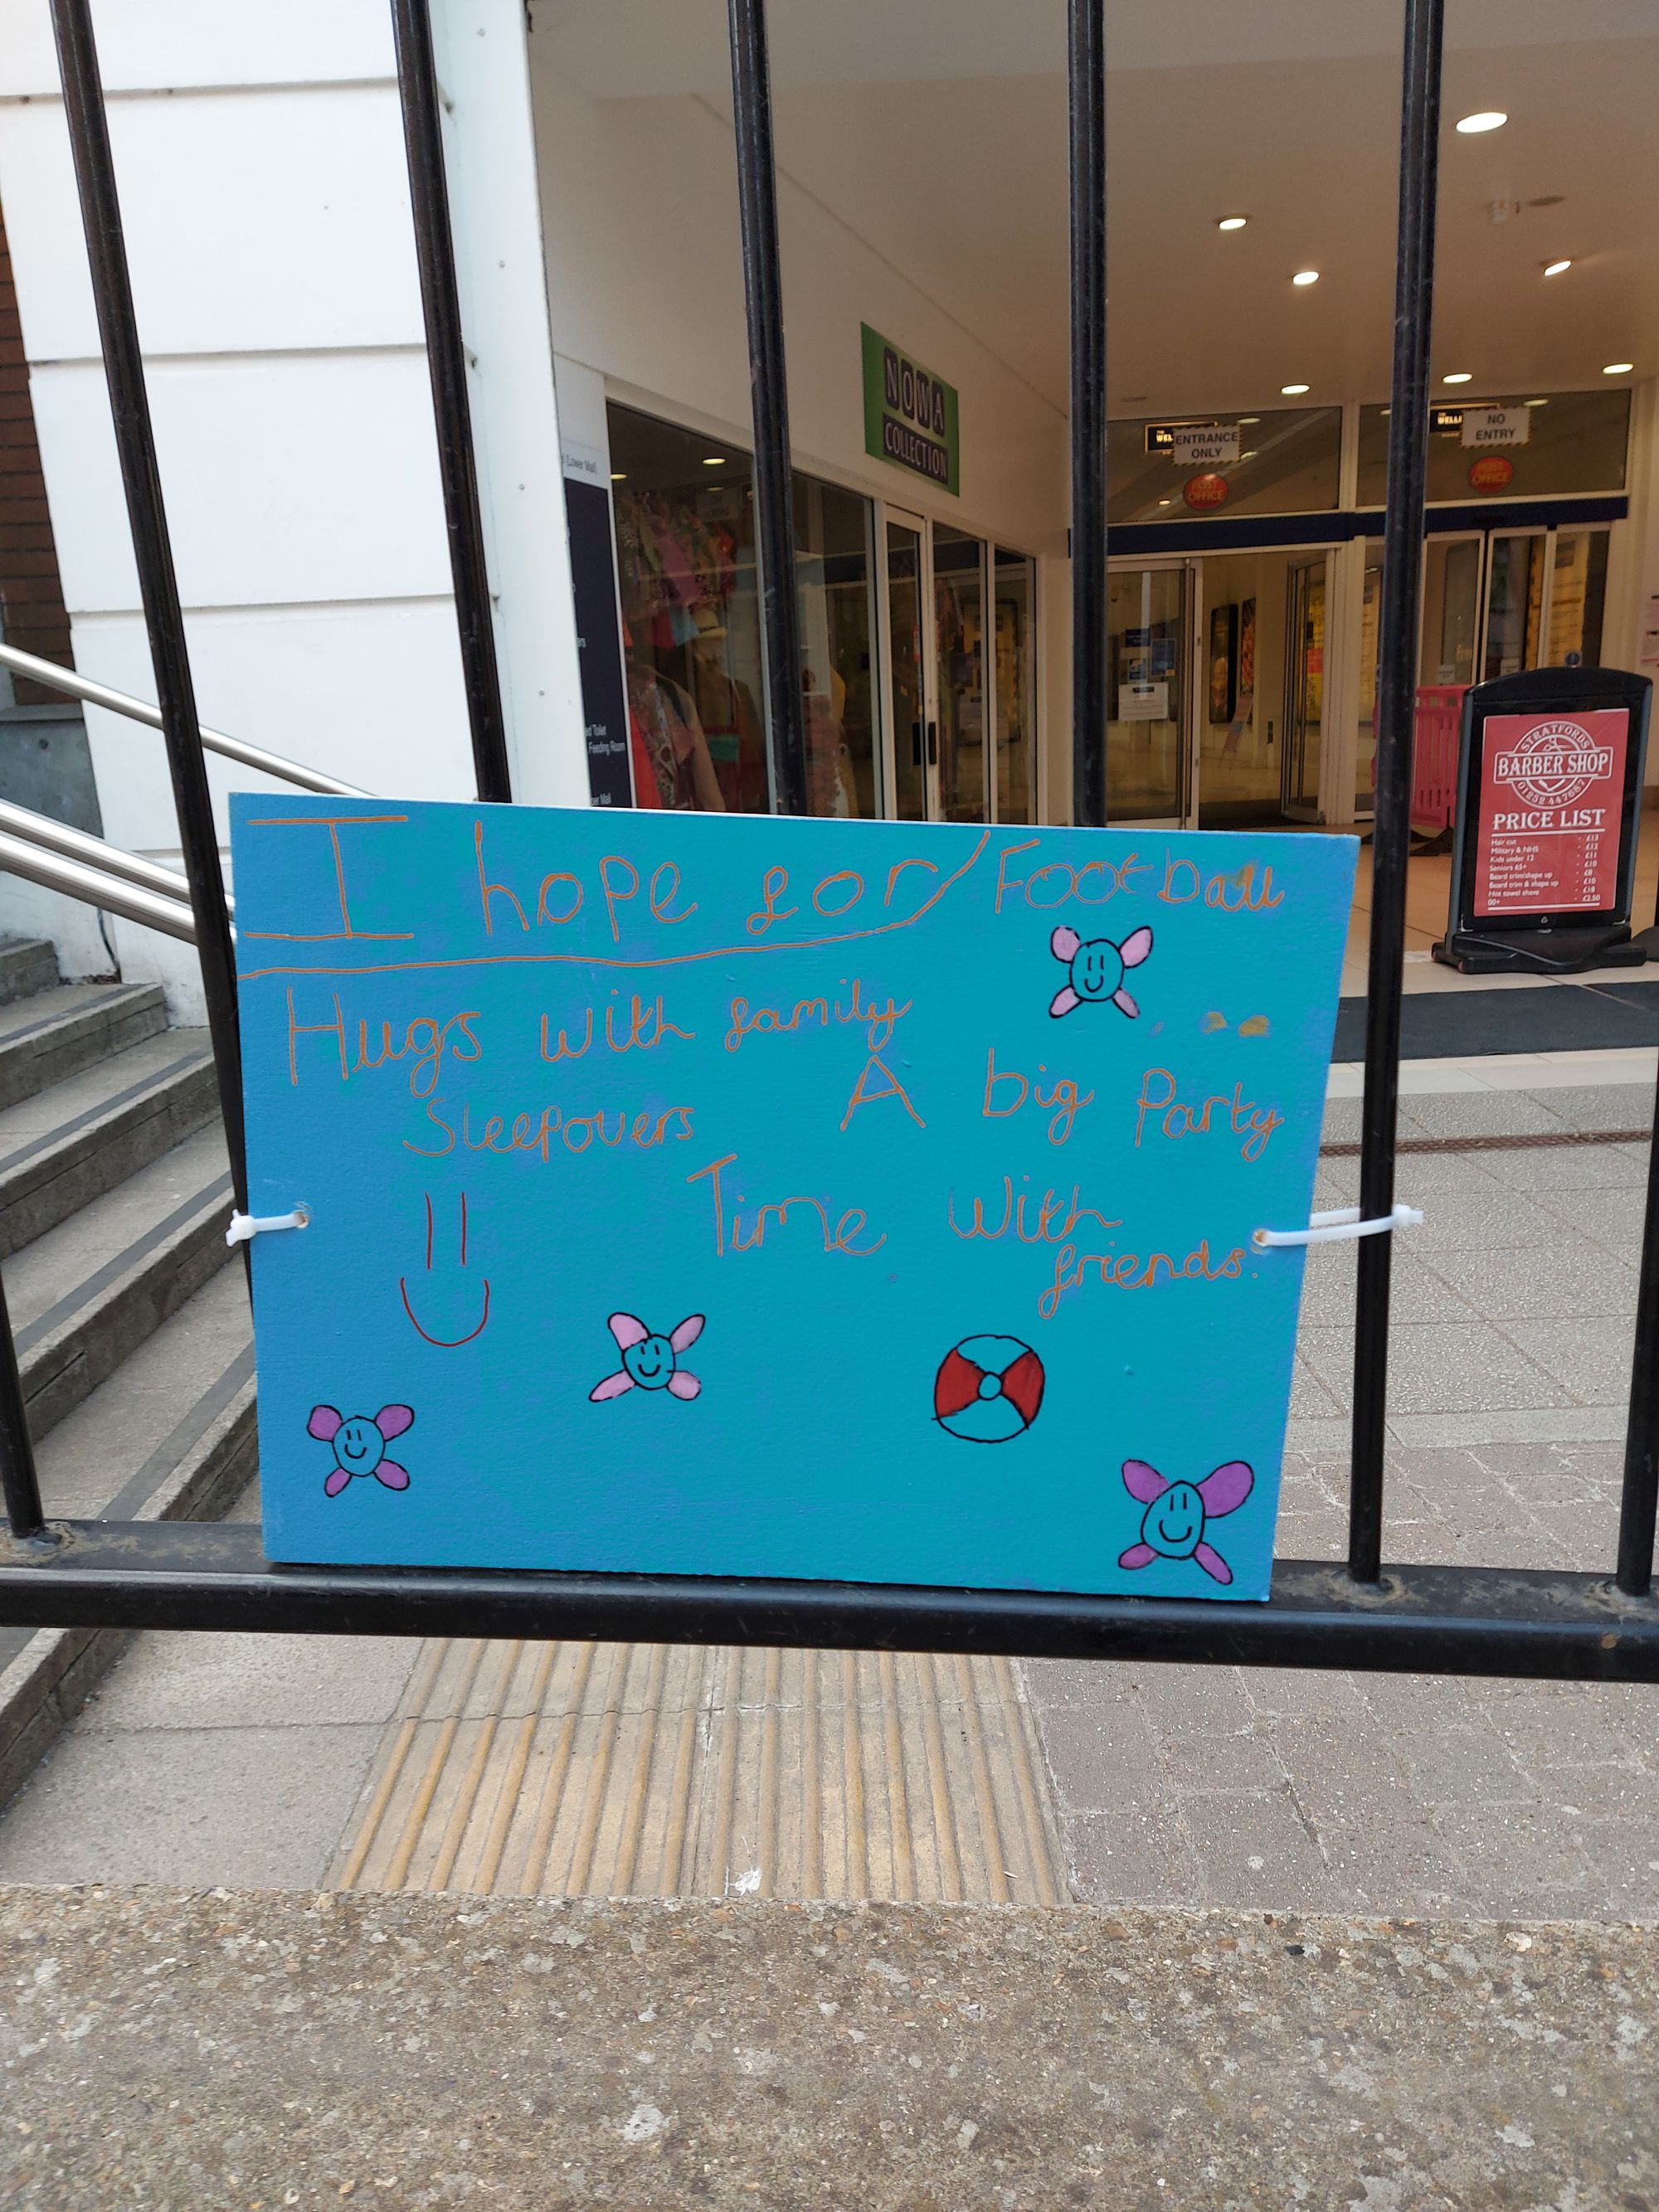 I hope for Football
Hugs with family
A big Party
Sleepovers
Time With
friends.
NOWA
COLLECTION
ENTRANCE
ONLY
POST
OFFICE
NO
ENTRY
POST
OFFICE
(Lower Mall)
Feeding Room
STRATFORDS
BARBER SHOP
PRICE LIST
Hair cut - £13
Military & NHS - £12
Kids under 12 - £11
Seniors 65+ - £10
Beard trim/shape up - £8
Beard trim & shape up - £10
Hot towel shave - £18